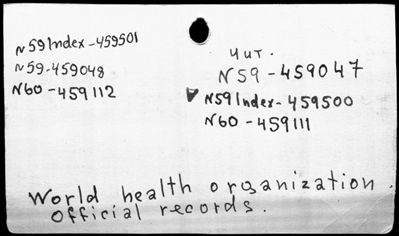 N59Index-459501
N59-459048
N60-459112
чит.
N59-459047
N59Index-459500
N60-459111
World health organization.
Official records.